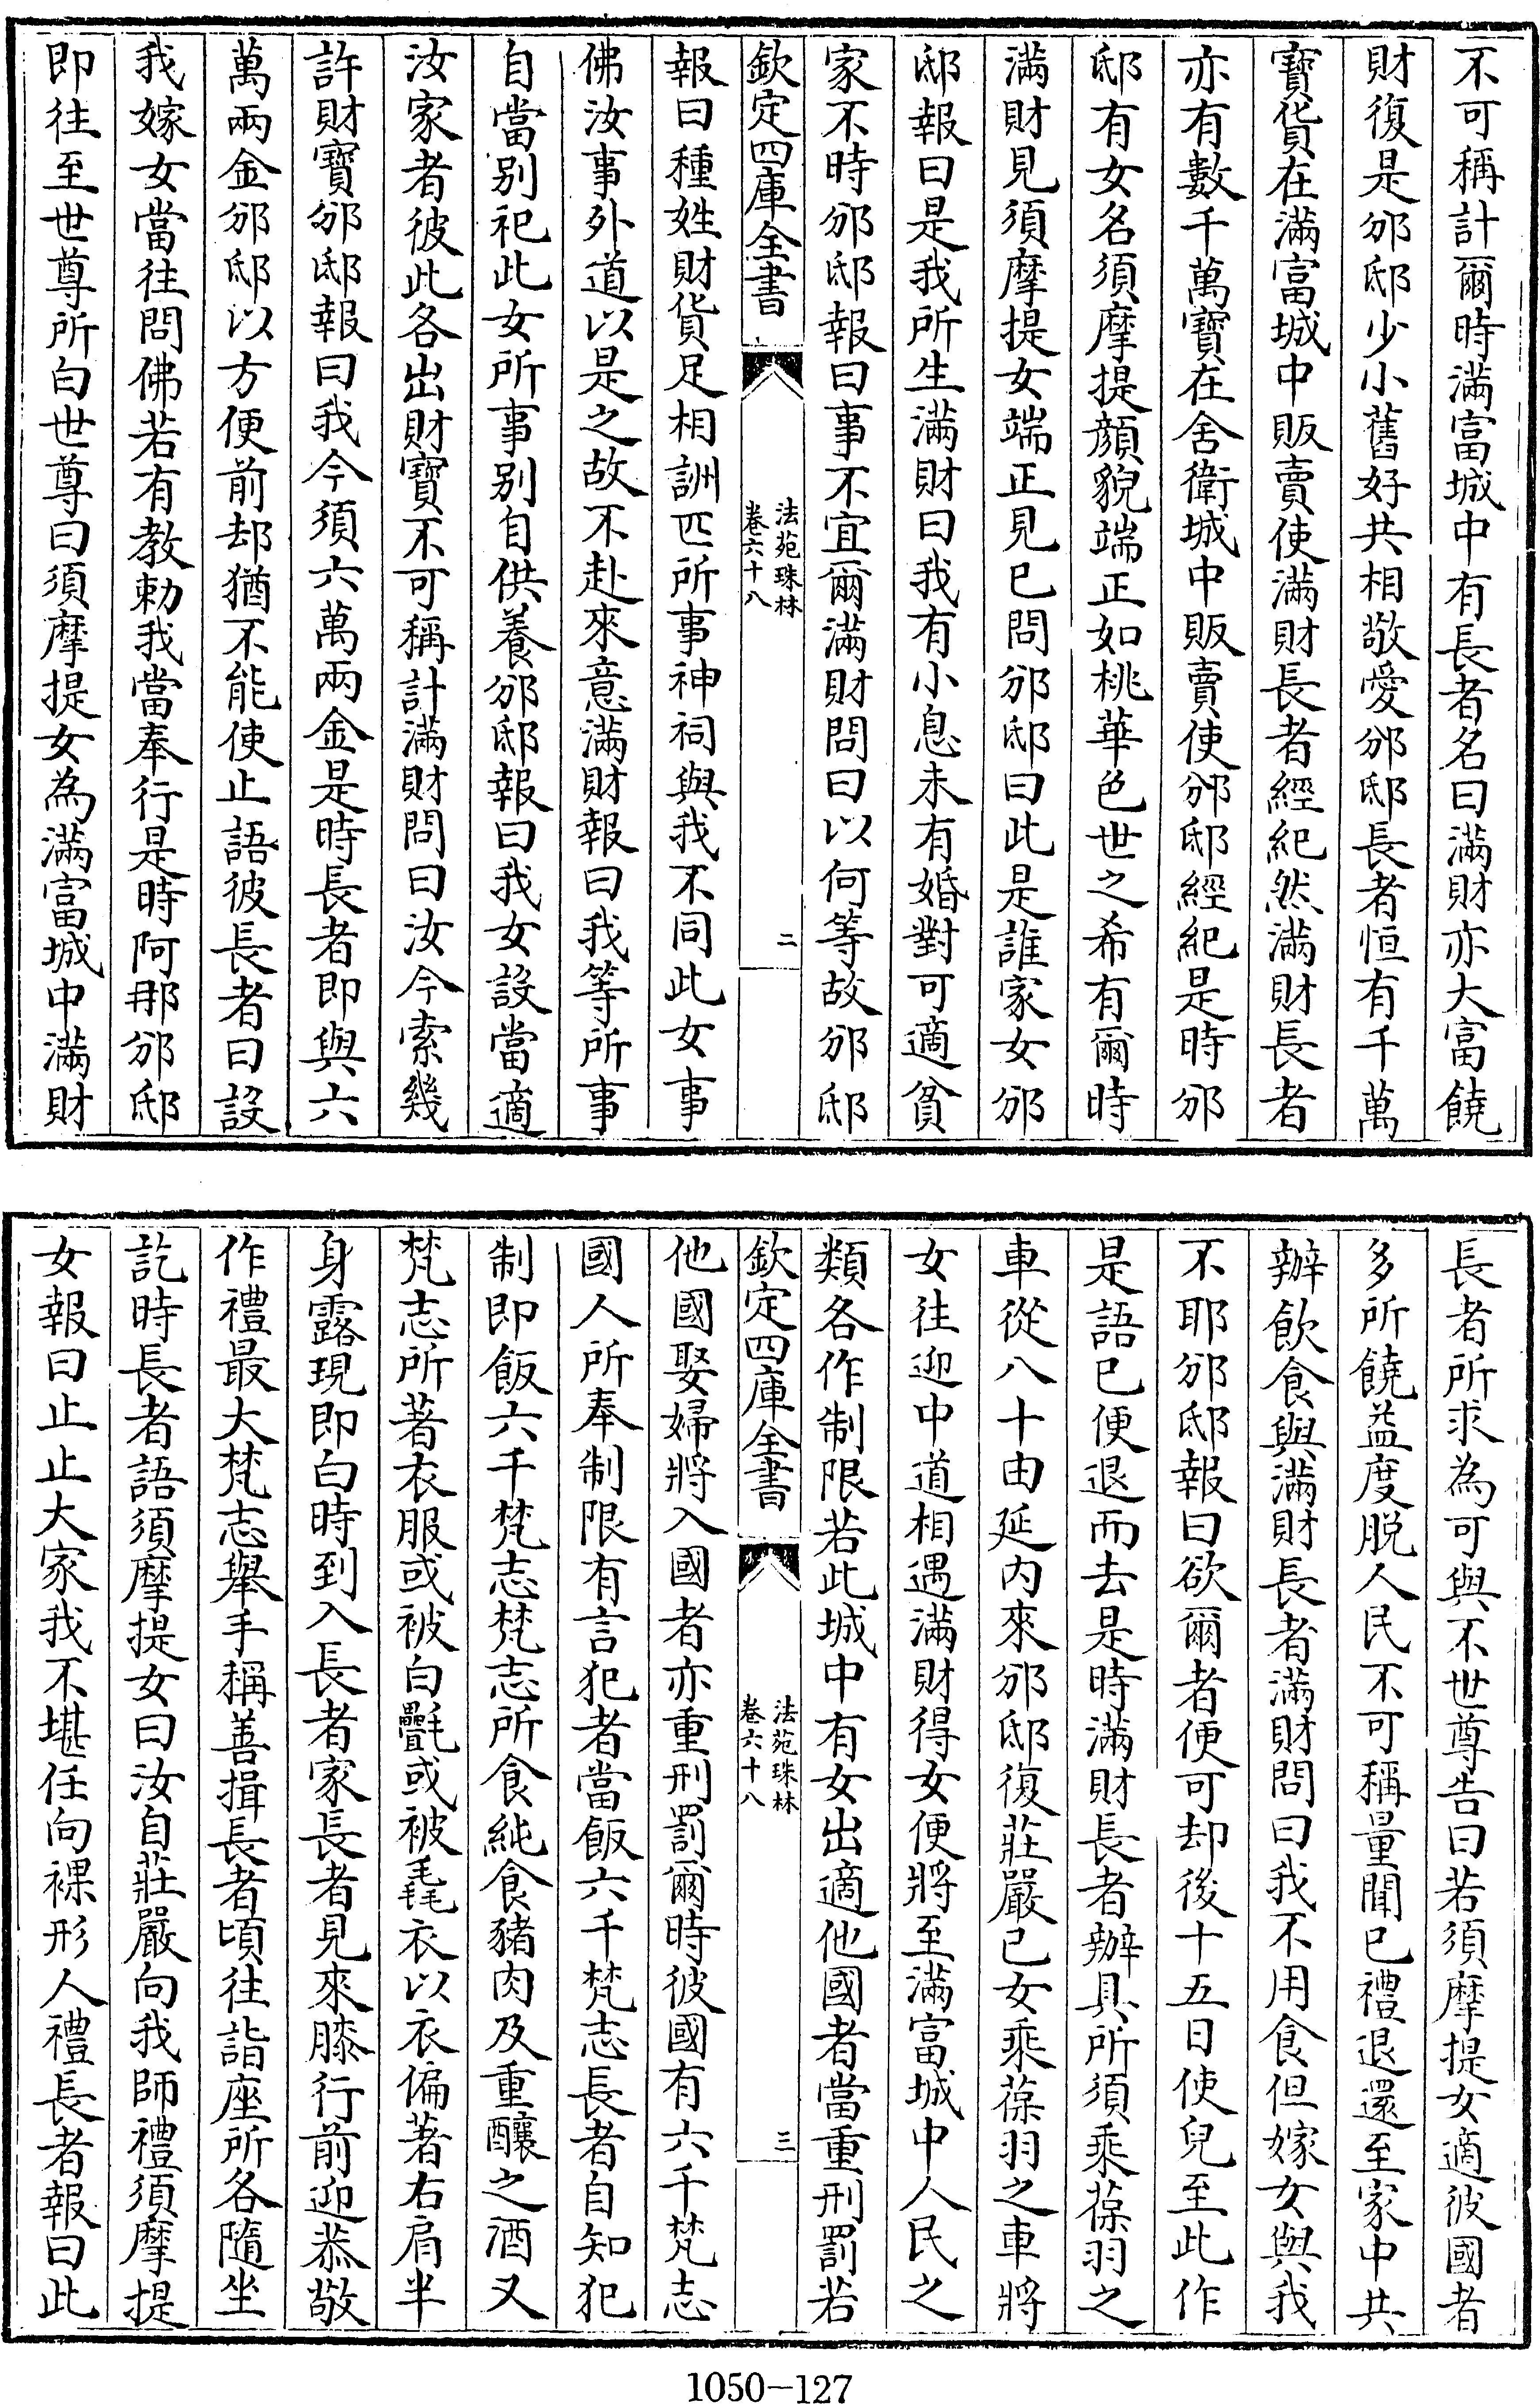 不可稱計爾時滿富城中有長者名曰滿財亦大富饒
財復是邠邸少小舊好共相敬愛邠邸長者恒有千萬
寶貨在滿富城中販賣使滿財長者經紀然滿財長者
亦有數千萬寶在舍衛城中販賣使邠邸經紀是時邠
邸有女名須摩提顔貌端正如桃華色世之希有爾時
滿財見須摩提女端正見已問邠邸曰此是誰家女邠
邸報曰是我所生滿財曰我有小息未有婚對可適貧
家不時邠邸報曰事不宜爾滿財問曰以何等故邠邸
欽定四庫全書
法苑珠林
卷六十八
二
報曰種姓財貨足相詶匹所事神祠與我不同此女事
佛汝事外道以是之故不赴來意滿財報曰我等所事
自當别祀此女所事别自供養邠邸報曰我女設當適
汝家者彼此各出財寶不可稱計滿財問曰汝今索幾
許財寶邠邸報曰我今須六萬兩金是時長者即與六
萬兩金邠邸以方便前却猶不能使止語彼長者曰設
我嫁女當往問佛若有教勅我當奉行是時阿那邠邸
即往至世尊所白世尊曰須摩提女為滿富城中滿財
長者所求為可與不世尊告曰若須摩提女適彼國者
多所饒益度脱人民不可稱量聞已禮退還至家中共
辦飲食與滿財長者滿財問曰我不用食但嫁女與我
不耶邠邸報曰欲爾者便可却後十五日使兒至此作
是語已便退而去是時滿財長者辦具所須乘葆羽之
車從八十由延内來邠邸復莊嚴已女乘葆羽之車將
女往迎中道相遇滿財得女便將至滿富城中人民之
類各作制限若此城中有女出適他國者當重刑罰若
欽定四庫全書
法苑珠林
卷六十八
三
他國娶婦將入國者亦重刑罰爾時彼國有六千梵志
國人所奉制限有言犯者當飯六千梵志長者自知犯
制即飯六千梵志梵志所食純食豬肉及重釀之酒又
梵志所著衣服或被白氎或被毳衣以衣偏著右肩半
身露現即白時到入長者家長者見來膝行前迎恭敬
作禮最大梵志舉手稱善揖長者頃往詣座所各隨坐
訖時長者語須摩提女曰汝自莊嚴向我師禮須摩提
女報曰止止大家我不堪任向裸形人禮長者報曰此
1050-127